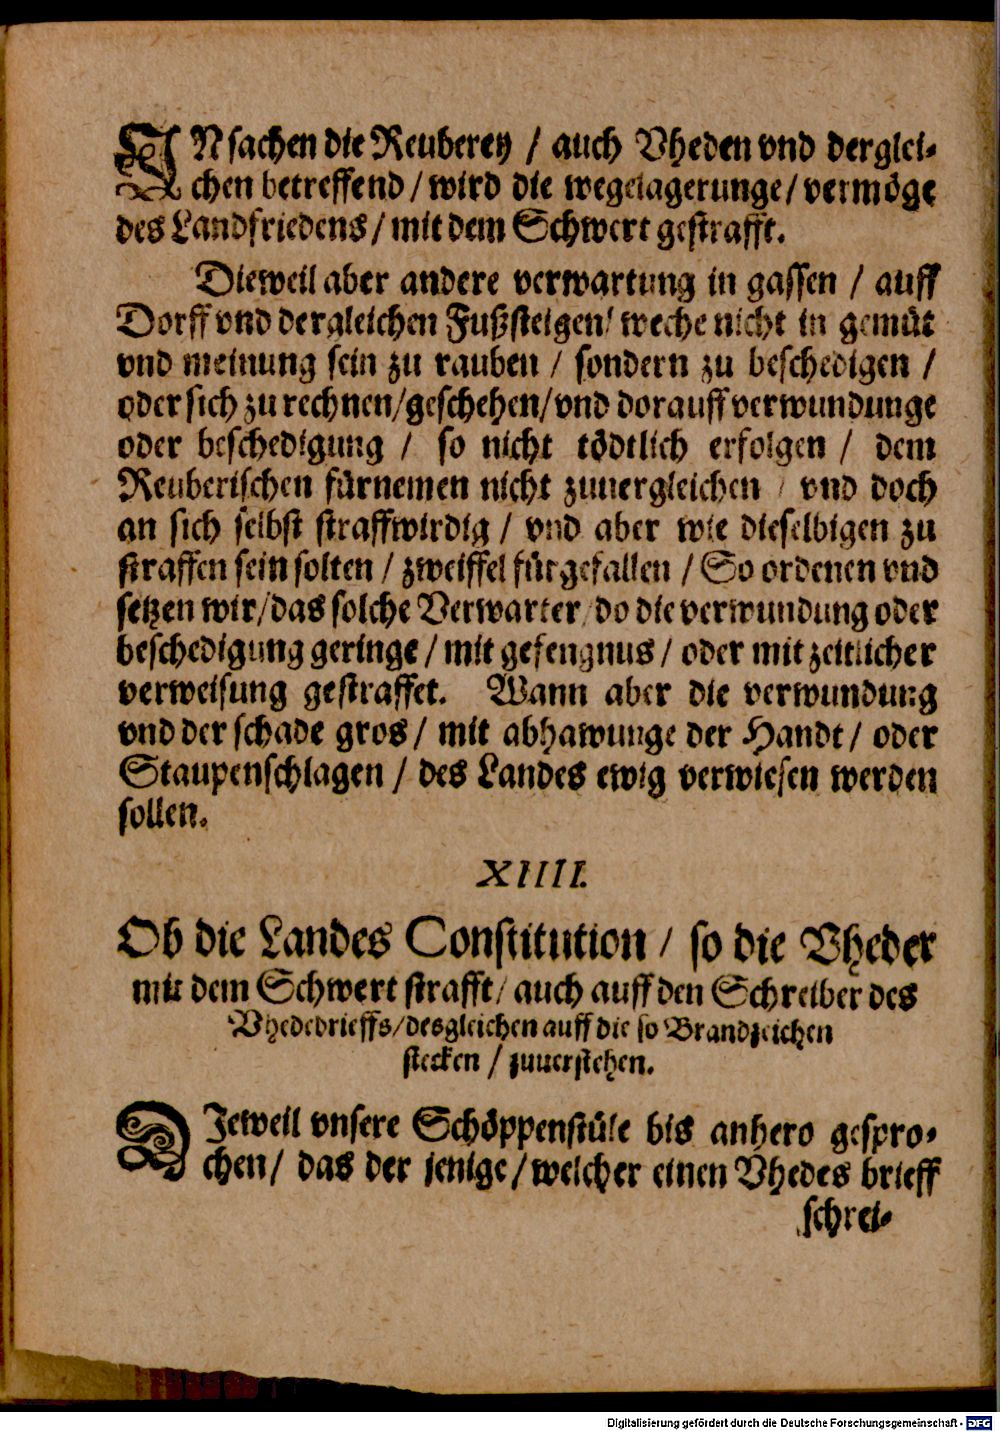 IN sachen die Reuberey / auch Vheden vnd derglei-
chen betreffend / wird die wegelagerunge / vermöge
des Landfriedens / mit dem Schwert gestrafft.
Dieweil aber andere verwartung in gassen / auff
Dorff vnd dergleichen Fußsteigen / weche nicht in gemüt
vnd meinung sein zu rauben / sondern zu beschedigen /
oder sich zu rechnen / geschehen / vnd dorauff verwundunge
oder beschedigung / so nicht tödtlich erfolgen / dem
Reuberischen fürnemen nicht zuuergleichen / vnd doch
an sich selbst straffwirdig / vnd aber wie dieselbigen zu
straffen sein solten / zweiffel fürgefallen / So ordenen vnd
setzen wir / das solche Verwarter / do die verwundung oder
beschedigung geringe / mit gefengnus / oder mit zeitlicher
verweisung gestraffet. Wann aber die verwundung
vnd der schade gros / mit abhawunge der Handt / oder
Staupenschlagen / des Landes ewig verwiesen werden
sollen.
XIIII.
Ob die Landes Constitution / so die Vheder
mit dem Schwert strafft / auch auff den Schreiber des
Vhedebrieffs / desgleichen auff die so Brandzeichen
stecken / zuuerstehen.
DIeweil vnsere Schöppenstüle bis anhero gespro-
chen / das der jenige / welcher einen Vhedes brieff
schrei-
Digitalisierung gefördert durch die Deutsche Forschungsgemeinschaft - DFG